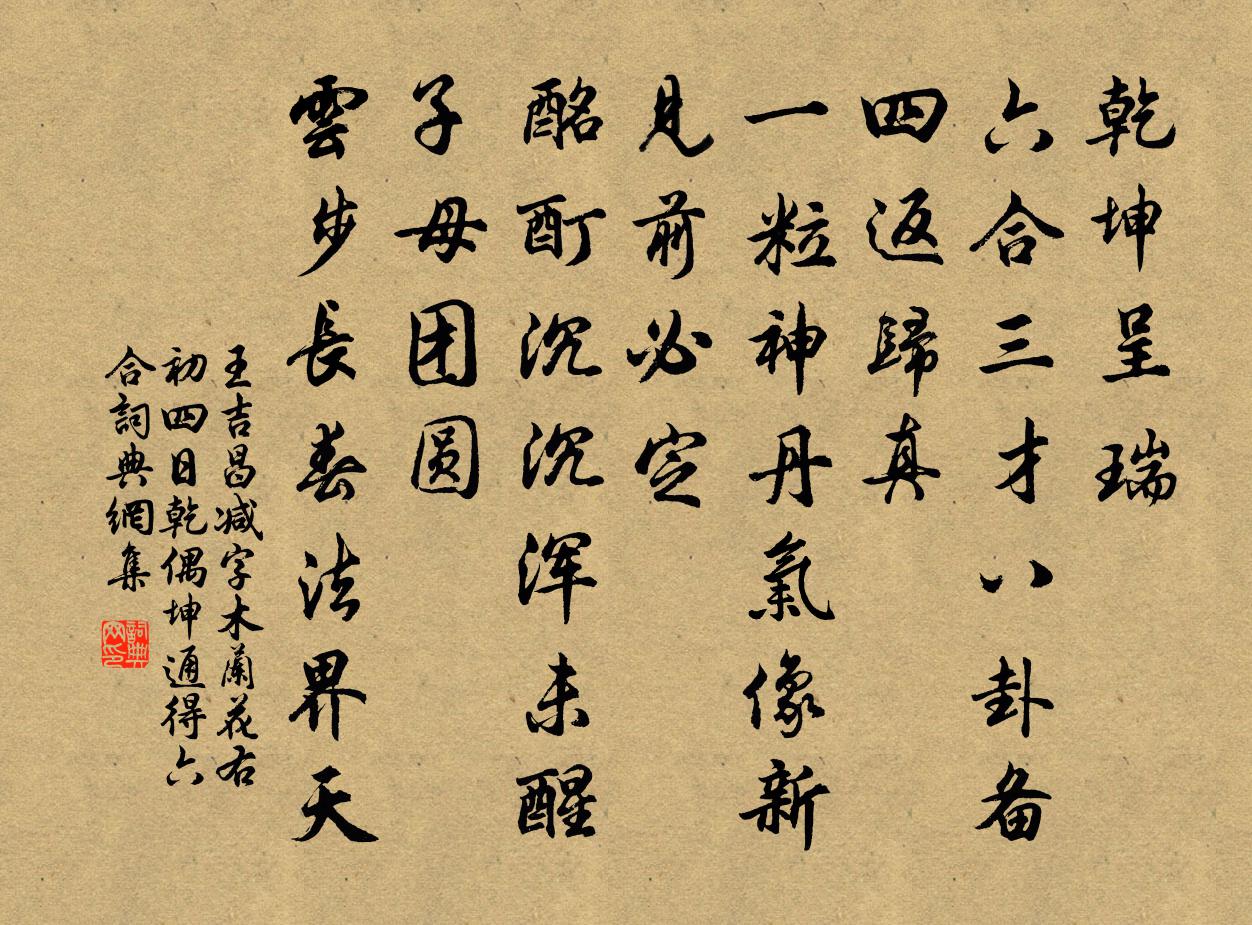 乾坤呈瑞
六合三才八卦备
四返歸真
一粒神丹氣像新
見前必定
酩酊沉沉浑未醒
子母团圆
雲步長春法界天
王吉昌减字木蘭花右
初四日乾偶坤通得六
合詞典網集
詞典
网印